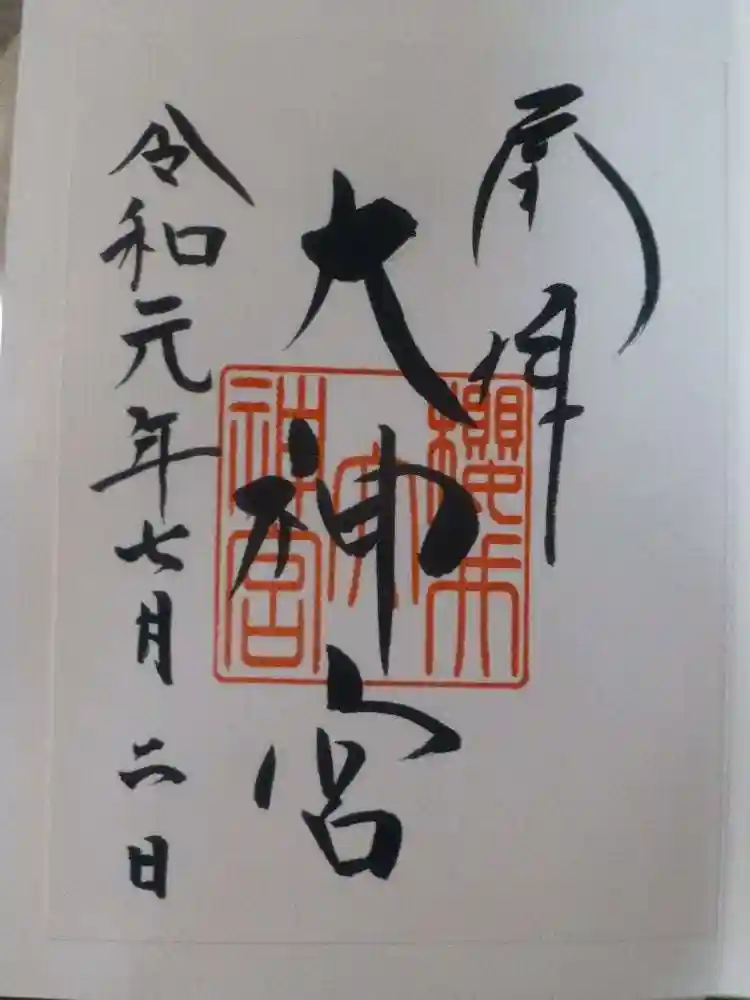 奉拝
大神宮
櫻木
大
神宮
令和元年七月二日